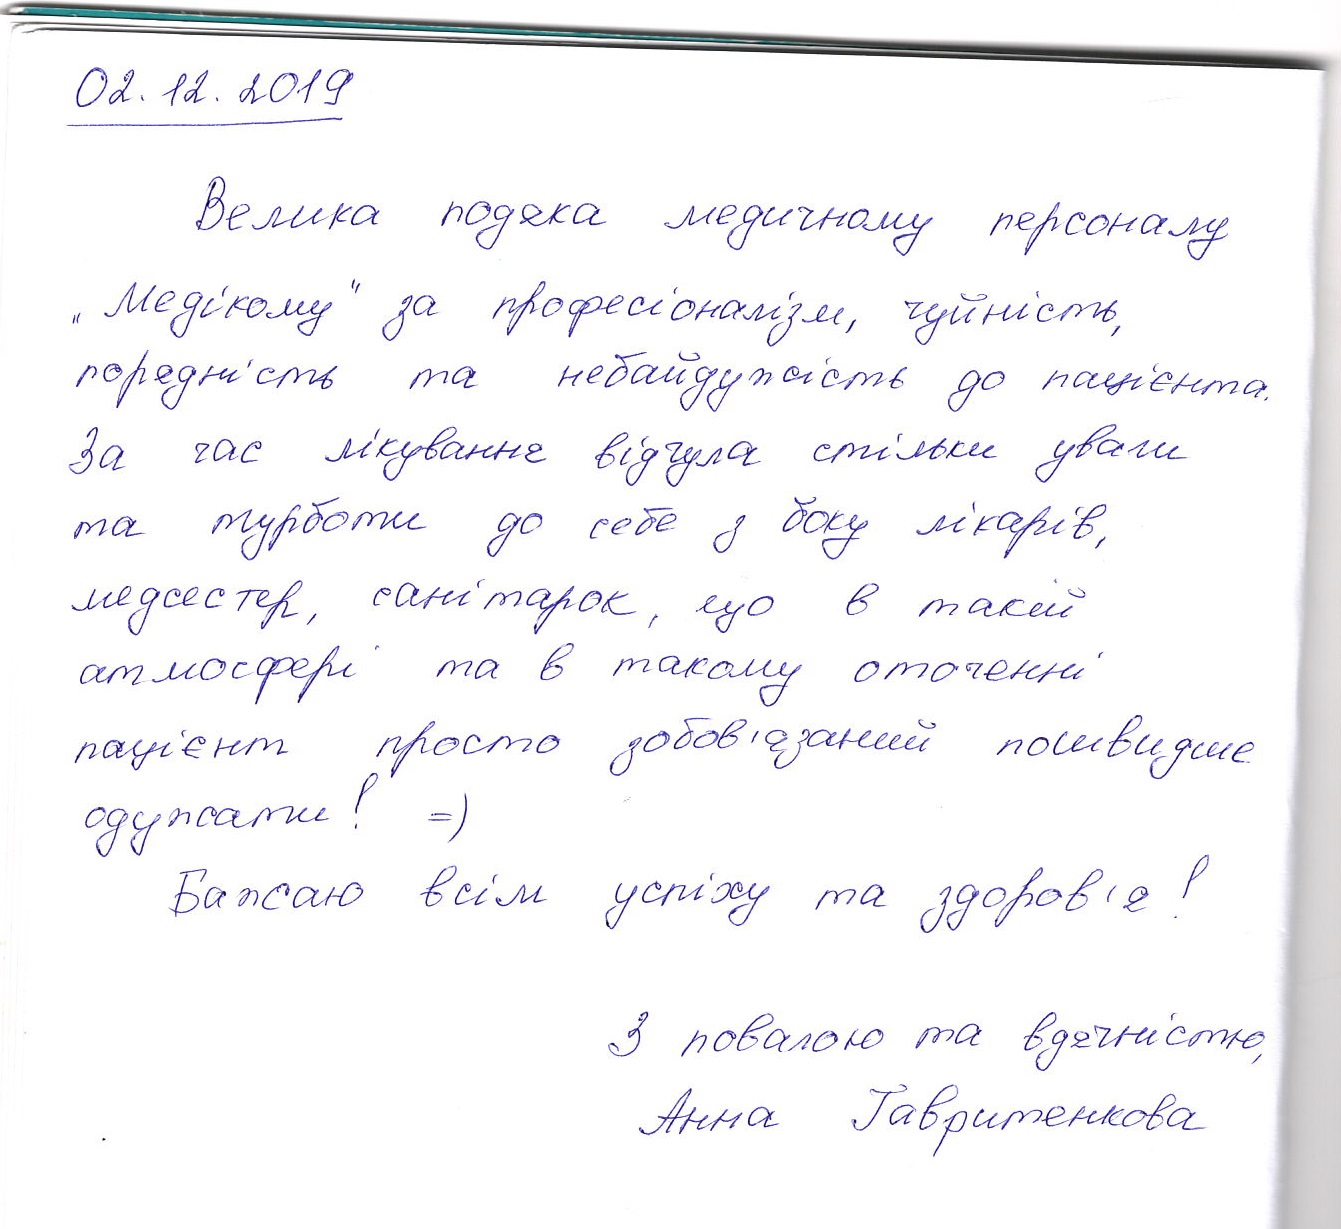 02.12.2019
Велика подяка медичному персоналу
„Медікому" за професіоналізм, чуйність,
порядність та небайдужість до пацієнта.
За час лікування відчула стільки уваги
та турботи до себе з боку лікарів,
медсестер, санітарок, що в такій
атмосфері та в такому оточенні
пацієнт просто зобов'язаний пошвидше
одужати! =)
Бажаю всім успіху та здоров'я!
З повагою та вдячністю,
Анна